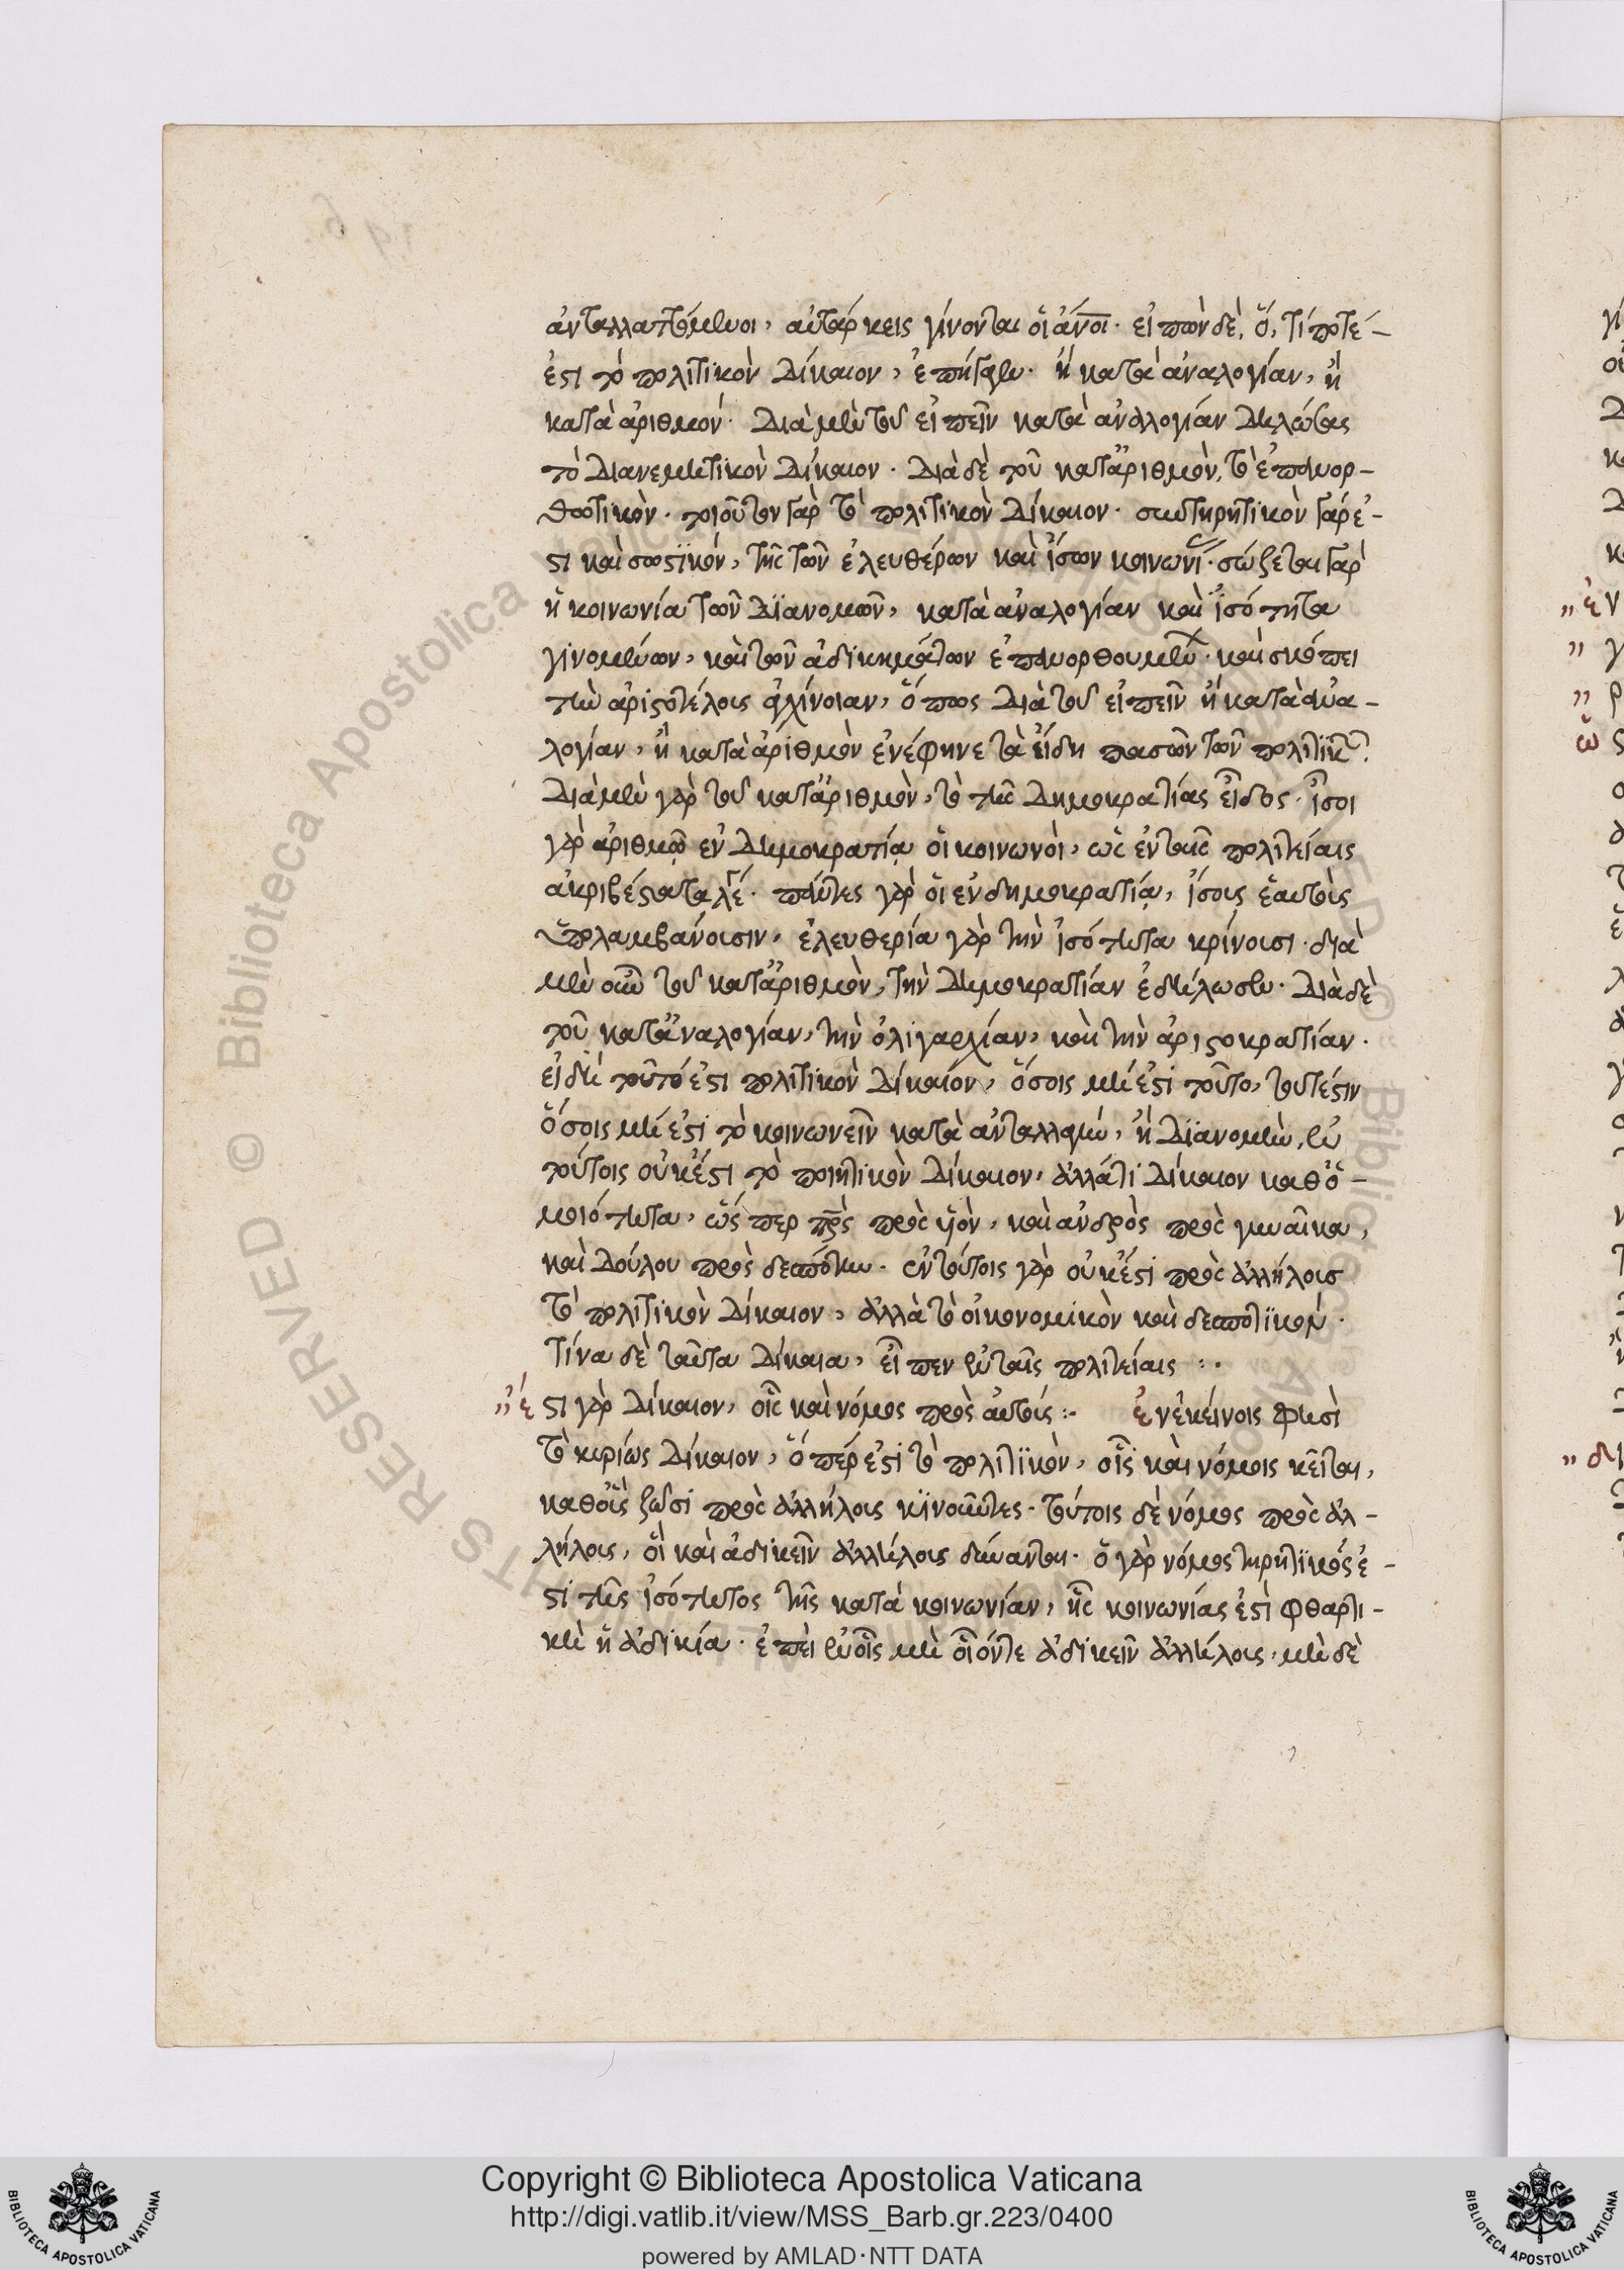 ἀνταλλαττόμενοι, αὐτάρκεις γίνονται οἱ ἄνοι· εἰπὼν δὲ, ὅ, τί ποτέ-
ἐστι τὸ πολιτικὸν δίκαιον, ἐπήγαγεν· ἢ κατὰ ἀναλογίαν, ἢ
κατὰ ἀριθμόν· διὰ μὲν τοῦ εἰπεῖν κατὰ ἀναλογίαν δηλώσας
τὸ διανεμητικὸν δίκαιον· διὰ δὲ τοῦ κατἀριθμὸν, τὸ ἐπανορ-
θωτικὸν· τοιοῦτον γὰρ τὸ πολιτικὸν δίκαιον· συντηρητικὸν γάρ ἐ-
στι καὶ σωστικόν, τῆς τῶν ἐλευθέρων καὶ ἴσων κοινωνί· σώζεται γὰρ
ἡ κοινωνία τῶν διανομῶν, κατὰ ἀναλογίαν καὶ ἰσότητα
γινομένων, καὶ τῶν ἀδικημάτων ἐπανορθουμέν· καὶ σκόπει
τὴν ἀριστοτέλους ἀγχίνοιαν, ὅπως διὰ τοῦ εἰπεῖν ἢ κατὰ ἀνα-
λογίαν, ἢ κατὰ ἀριθμὸν ἐνέφηνε τὰ εἴδη πασῶν τῶν πολιτικ
διὰ μὲν γὰρ τοῦ κατἀριθμὸν, τὸ τῆς δημοκρατίας εἶδος· ἴσοι
γὰρ ἀριθμῷ ἐν δημοκρατίᾳ οἱ κοινωνοὶ, ὡς ἐν ταῖς πολιτείαις
ἀκριβέστατα λέ· πάντες γὰρ οἱ ἐν δημοκρατίᾳ, ἴσους ἑαυτοὺς
ὑπολαμβάνουσιν, ἐλευθερία γὰρ τὴν ἰσότητα κρίνουσι· διὰ
μὲν οὖν τοῦ κατἀριθμὸν, τὴν δημοκρατίαν ἐδήλωσεν· διὰ δὲ
τοῦ κατἀναλογίαν, τὴν ὀλιγαρχίαν, καὶ τὴν ἀριστοκρατίαν·
εἰ δὴ τοῦτό ἐστι πολιτικὸν δίκαιόν, ὅσοις μή ἐστι τοῦτο, τουτέστιν
ὅσοις μή ἐστι τὸ κοινωνεῖν κατὰ ἀνταλλαγὴν, ἢ διανομὴν, ἐν
τούτοις οὐκ ἔστι τὸ ποιητικὸν δίκαιον, ἀλλά τι δίκαιον καθ ὁ-
μοιότητα, ὥσπερ πρς πρὸς υἱὸν, καὶ ἀνδρὸς πρὸς γυναῖκα,
καὶ δούλου πρὸς δεσπότην· ἐν τούτοις γὰρ οὐκ ἔστι πρὸς ἀλλήλους
τὸ πολιτικὸν δίκαιον, ἀλλὰ τὸ οἰκονομικὸν καὶ δεσποτικόν·
τίνα δὲ ταῦτα δίκαια, εἶπεν ἐν ταῖς πολιτείαις :·
” ἔστι γὰρ δίκαιον, οἷς καὶ νόμος πρὸς αὐτούς :· ἐν ἐκείνοις φησὶ
τὸ κυρίως δίκαιον, ὅπέρ ἐστι τὸ πολιτικὸν, οἷς καὶ νόμοις κεῖται,
καθ οὓς ζῶσι πρὸς ἀλλήλους κινοῦντες· τούτοις δὲ νόμος πρὸς ἀλ-
λήλους, οἳ καὶ ἀδικεῖν ἀλλήλους δύνανται· ὁ γὰρ νόμος τηρητικός ἐ-
στι τῆς ἰσότητος τῆς κατὰ κοινωνίαν, ἧς κοινωνίας ἐστὶ φθαρτι-
κὴ ἡ ἀδικία· ἐπεὶ ἐν οἷς μὴ οἷόντε ἀδικεῖν ἀλλήλους, μὴ δὲ
Copyright © Biblioteca Apostolica Vaticana
http://digi.vatlib.it/view/MSS_Barb.gr.223/0400
powered by AMLAD·NTT DATA